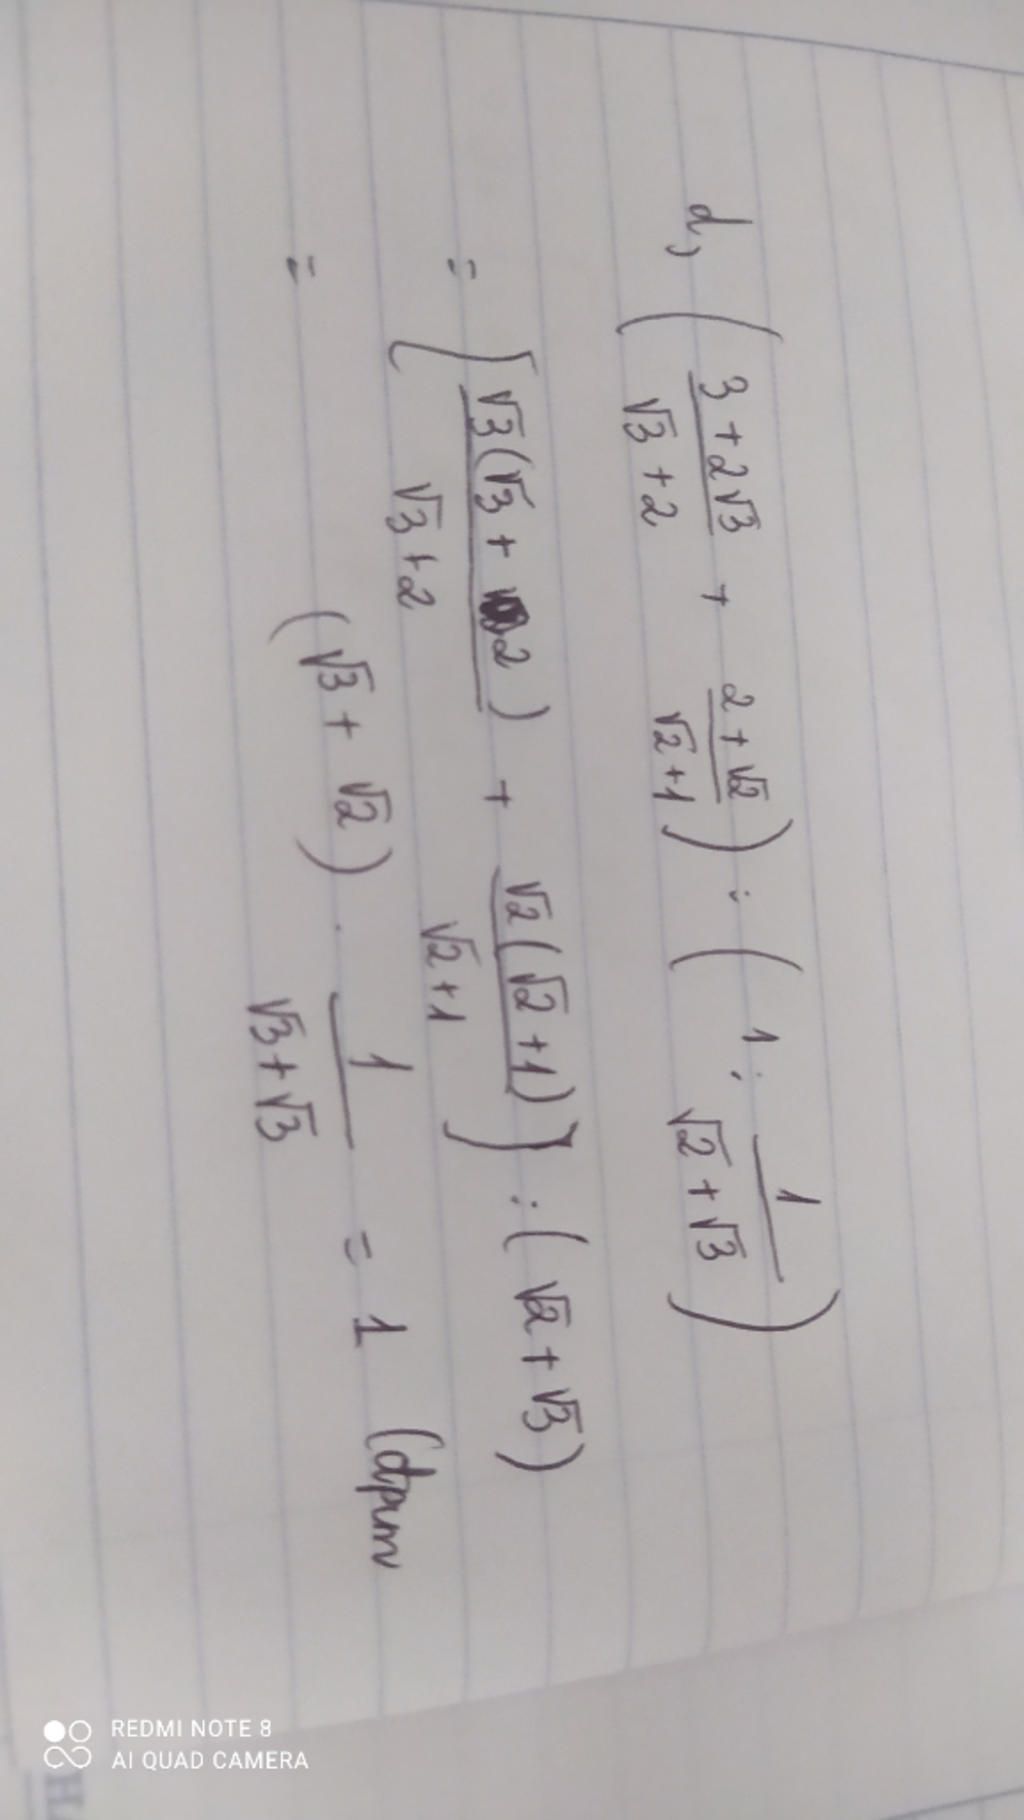 d, ( (3 + 2√3)/(√3 + 2) + (2 + √2)/(√2 + 1) ) : ( 1 : 1/(√2 + √3) )
= [ √3(√3 + 2)/(√3 + 2) + √2(√2 + 1)/(√2 + 1) ] : (√2 + √3)
= (√3 + √2) . 1/(√3 + √3) = 1 (đpcm
REDMI NOTE 8
AI QUAD CAMERA